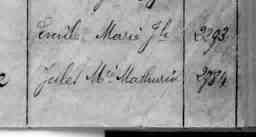 Emile Marie Jh 2293
Jules Mie Mathurin 2784